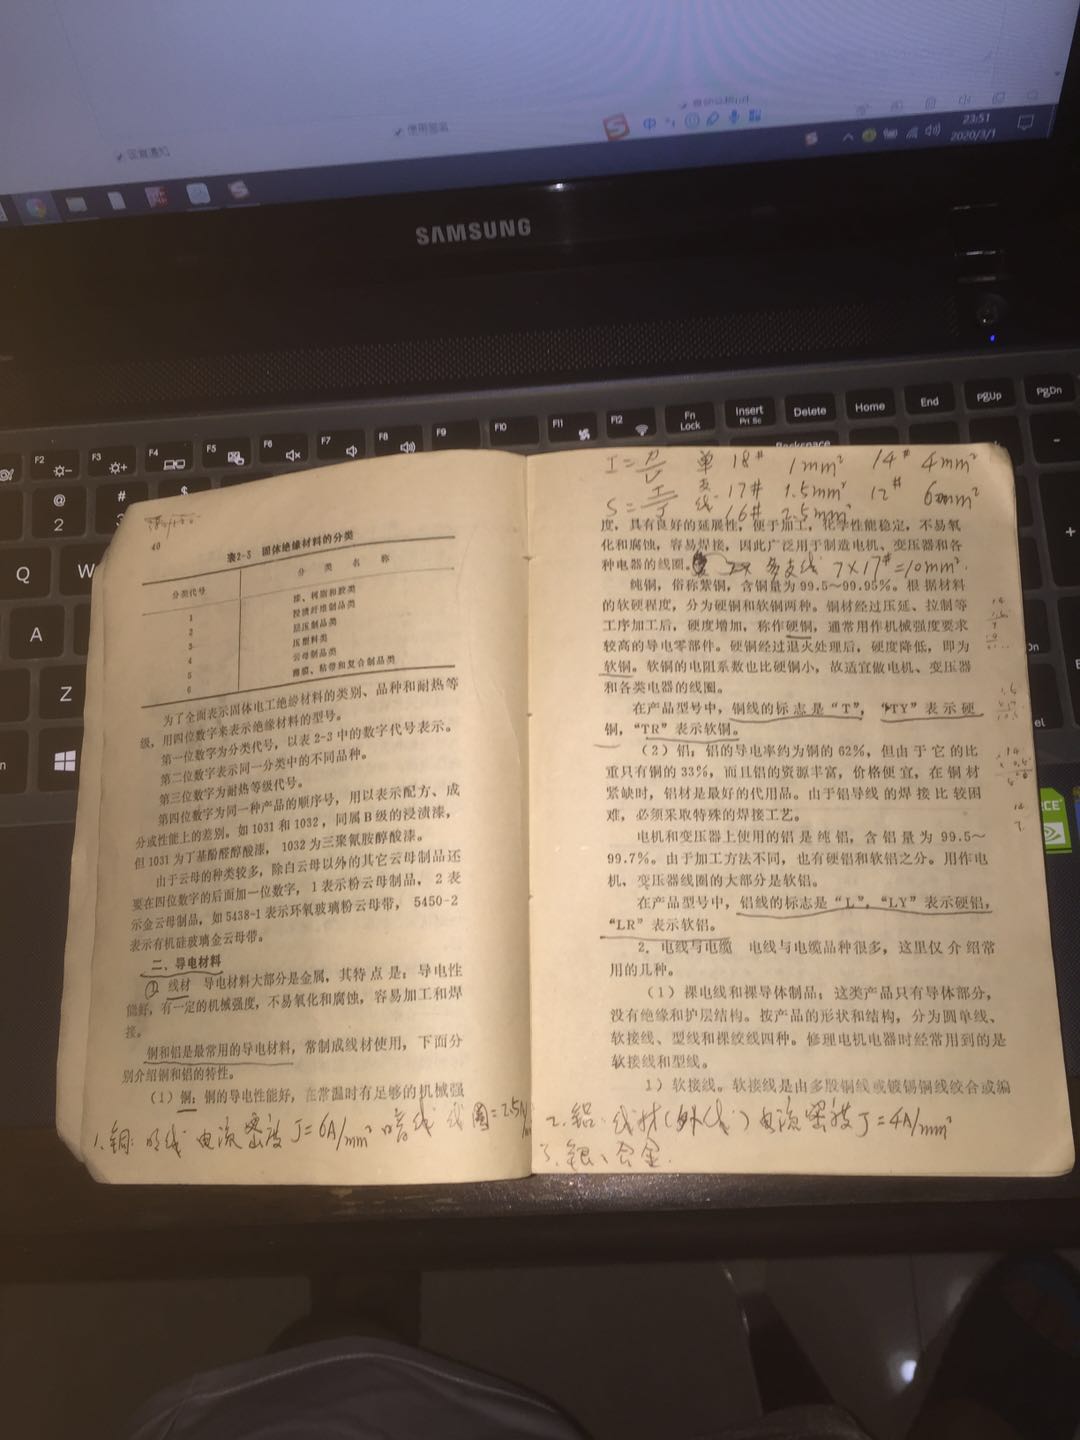 使用图案
23:51
2020/3/1
中
SAMSUNG
F2
F3
F4
F5
F6
F7
F8
F9
F10
F11
F12
Fn Lock
Insert
Prt Sc
Delete
Home
End
PgUp
PgDn
Backspace
@
2
#
3
$
Q
W
A
Z
40
表2-3 固体绝缘材料的分类
分类代号
分 类 名 称
1
漆、树脂和胶类
2
浸渍纤维制品类
3
层压制品类
4
压塑料类
5
云母制品类
6
薄膜、粘带和复合制品类
为了全面表示固体电工绝缘材料的类别、品种和耐热等
级,用四位数字来表示绝缘材料的型号。
第一位数字为分类代号,以表2-3中的数字代号表示。
第二位数字表示同一分类中的不同品种。
第三位数字为耐热等级代号。
第四位数字为同一种产品的顺序号,用以表示配方、成
分或性能上的差别。如1031和1032,同属B级的浸渍漆,
但1031为丁基酚醛醇酸漆,1032为三聚氰胺醇酸漆。
由于云母的种类较多,除白云母以外的其它云母制品还
要在四位数字的后面加一位数字,1表示粉云母制品,2表
示金云母制品,如5438-1表示环氧玻璃粉云母带,5450-2
表示有机硅玻璃金云母带。
二、导电材料
1 线材 导电材料大部分是金属,其特点是:导电性
能好,有一定的机械强度,不易氧化和腐蚀,容易加工和焊
接。
铜和铝是最常用的导电材料,常制成线材使用,下面分
别介绍铜和铝的特性。
(1)铜:铜的导电性能好,在常温时有足够的机械强
1.铜:明线 电流密度 J=6A/mm² 暗线 线圈=2.5A/m
I=P/V 单 18# 1mm² 14# 4mm²
S=I/J 支线 17# 1.5mm² 12# 6mm²
16# 2.5mm²
度,具有良好的延展性,便于加工,化学性能稳定,不易氧
化和腐蚀,容易焊接,因此广泛用于制造电机、变压器和各
种电器的线圈。
多支线 7×17#=10mm².
纯铜,俗称紫铜,含铜量为99.5~99.95%。根据材料
的软硬程度,分为硬铜和软铜两种。铜材经过压延、拉制等
工序加工后,硬度增加,称作硬铜,通常用作机械强度要求
较高的导电零部件。硬铜经过退火处理后,硬度降低,即为
软铜。软铜的电阻系数也比硬铜小,故适宜做电机、变压器
和各类电器的线圈。
在产品型号中,铜线的标志是“T”,“TY”表示硬
铜,“TR”表示软铜。
(2)铝:铝的导电率约为铜的62%,但由于它的比
重只有铜的33%,而且铝的资源丰富,价格便宜,在铜材
紧缺时,铝材是最好的代用品。由于铝导线的焊接比较困
难,必须采取特殊的焊接工艺。
电机和变压器上使用的铝是纯铝,含铝量为99.5~
99.7%。由于加工方法不同,也有硬铝和软铝之分。用作电
机、变压器线圈的大部分是软铝。
在产品型号中,铝线的标志是“L”,“LY”表示硬铝,
“LR”表示软铝。
2.电线与电缆 电线与电缆品种很多,这里仅介绍常
用的几种。
(1)裸电线和裸导体制品:这类产品只有导体部分,
没有绝缘和护层结构。按产品的形状和结构,分为圆单线、
软接线、型线和裸绞线四种。修理电机电器时经常用到的是
软接线和型线。
1)软接线。软接线是由多股铜线或镀锡铜线绞合或编
2.铝:线材(外线)电流密度J=4A/mm²
3.银、合金.